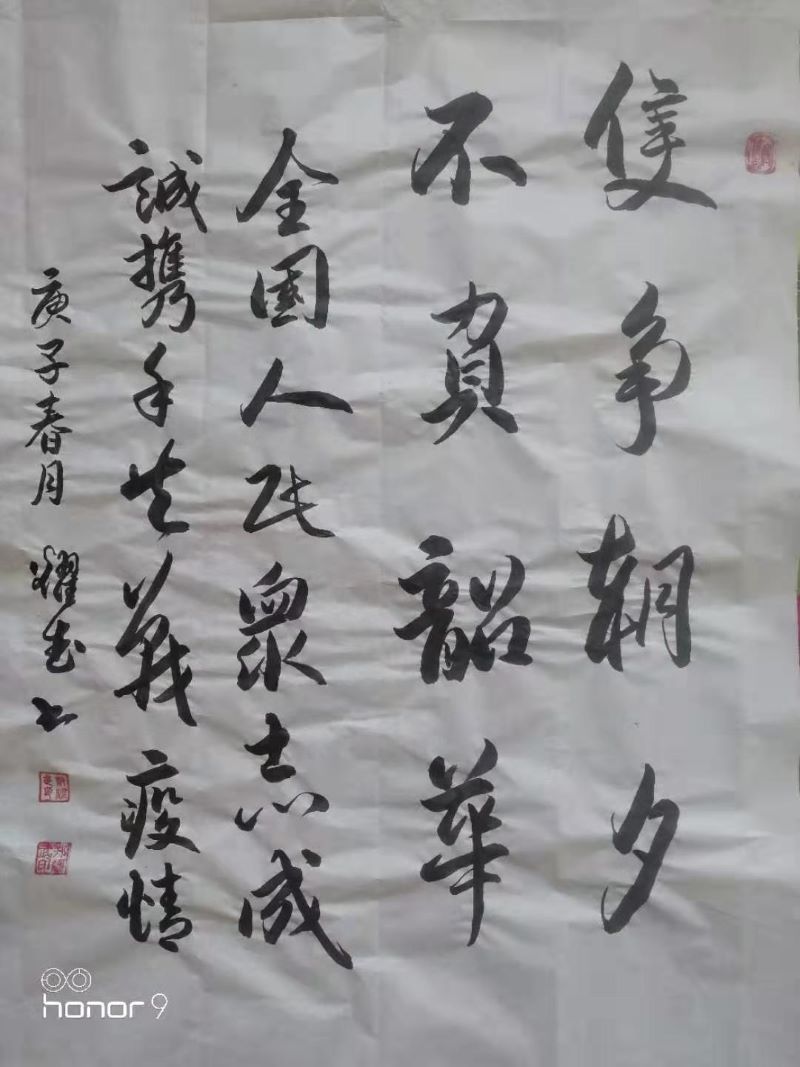 隻争朝夕
不負韶華
全国人民眾志成
誠携手共戰疫情
庚子春月 耀武书
honor 9